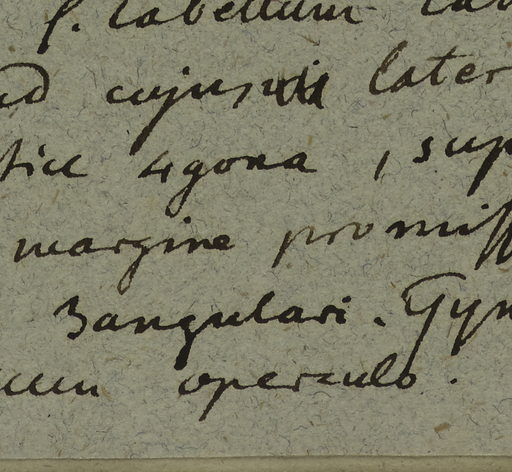 f. labellum
cujusvis later
tice 4gona, sup
margine promiss
3angulari. Gyn
operculo.